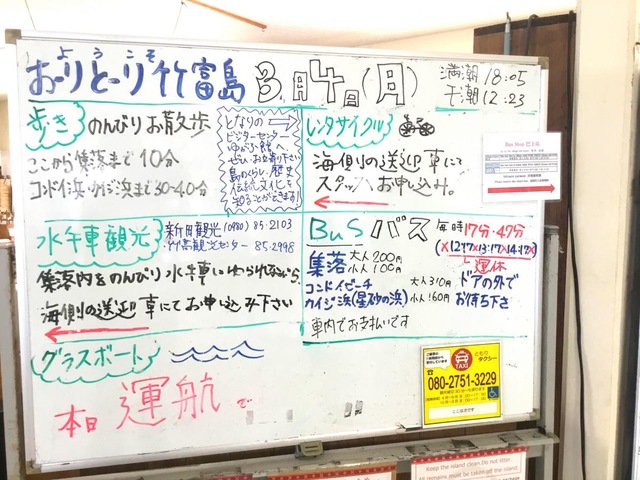 ようこそ
おーりとーり竹富島 3月4日(月)
満潮 18:05
干潮 12:23
歩き のんびりお散歩
ここから集落まで10分
コンドイ浜・カイジ浜まで30-40分
となりの
ビジターセンター
ゆがふ館へ
ぜひお立寄り下さい
島のくらし・歴史
伝統文化を
知ることができます!
レンタサイクル
海側の送迎車にて
スタッフへお申し込み。
Bus Stop
水牛車観光 新田観光 (0980) 85-2103
竹富観光センター 85-2998
集落内をのんびり水牛車にゆられながら
海側の送迎車にてお申し込み下さい
BuS バス 毎時17分・47分
(×12:17×13:17×14:17×)
運休
集落 大人200円
小人100円
コンドイビーチ 大人310円
カイジ浜(星砂の浜) 小人160円
ドアの外で
お待ち下さい
車内でお支払いです
グラスボート
本日 運航 で
TAXI
ともり
タクシー
080-2751-3229
Keep the island clean. Do not litter.
All remains must be taken off the island.